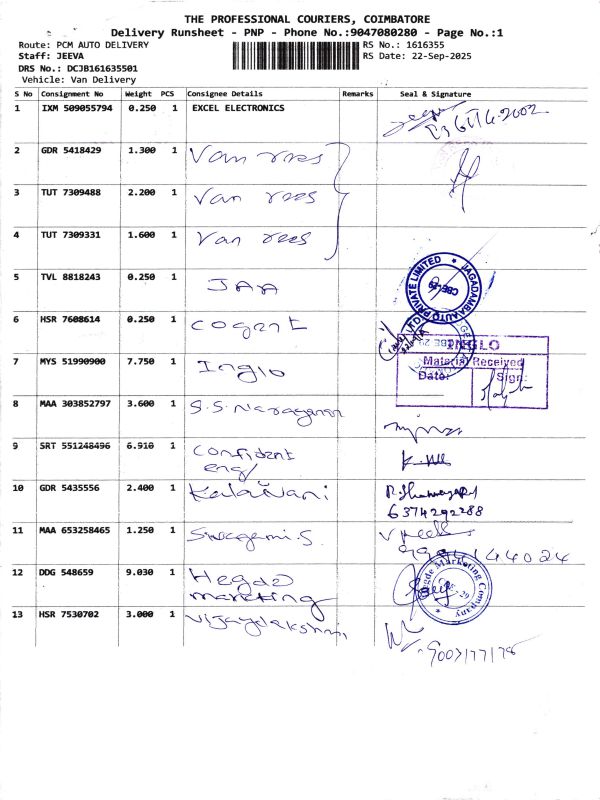 THE PROFESSIONAL COURIERS, COIMBATORE
Delivery Runsheet - PNP - Phone No.:9047080280 - Page No.:1
Route: PCM AUTO DELIVERY RS No.: 1616355
Staff: JEEVA RS Date: 22-Sep-2025
DRS No.: DCJB161635501
Vehicle: Van Delivery
S No Consignment No Weight PCS Consignee Details Remarks Seal & Signature
1 IXM 509055794 0.250 1 EXCEL ELECTRONICS
2 GDR 5418429 1.300 1 Van rees
3 TUT 7309488 2.200 1 Van rees
4 TUT 7309331 1.600 1 Van rees
5 TVL 8818243 0.250 1 JAA
JAGADAMBA AUTO PRIVATE LIMITED
CBE-29
6 HSR 7608614 0.250 1 Cogent
INGLO
7 MYS 51990900 7.750 1 Inglo
Material Received
Date: Sign:
8 MAA 303852797 3.600 1 S.S. Narayanan
9 SRT 551248496 6.910 1 Confident
eng/
10 GDR 5435556 2.400 1 KalaiVani
6374292288
11 MAA 653258465 1.250 1 S.
12 DDG 548659 9.030 1 Hegde
marketing
Hegde Marketing Company
13 HSR 7530702 3.000 1 Vijayalakshmi